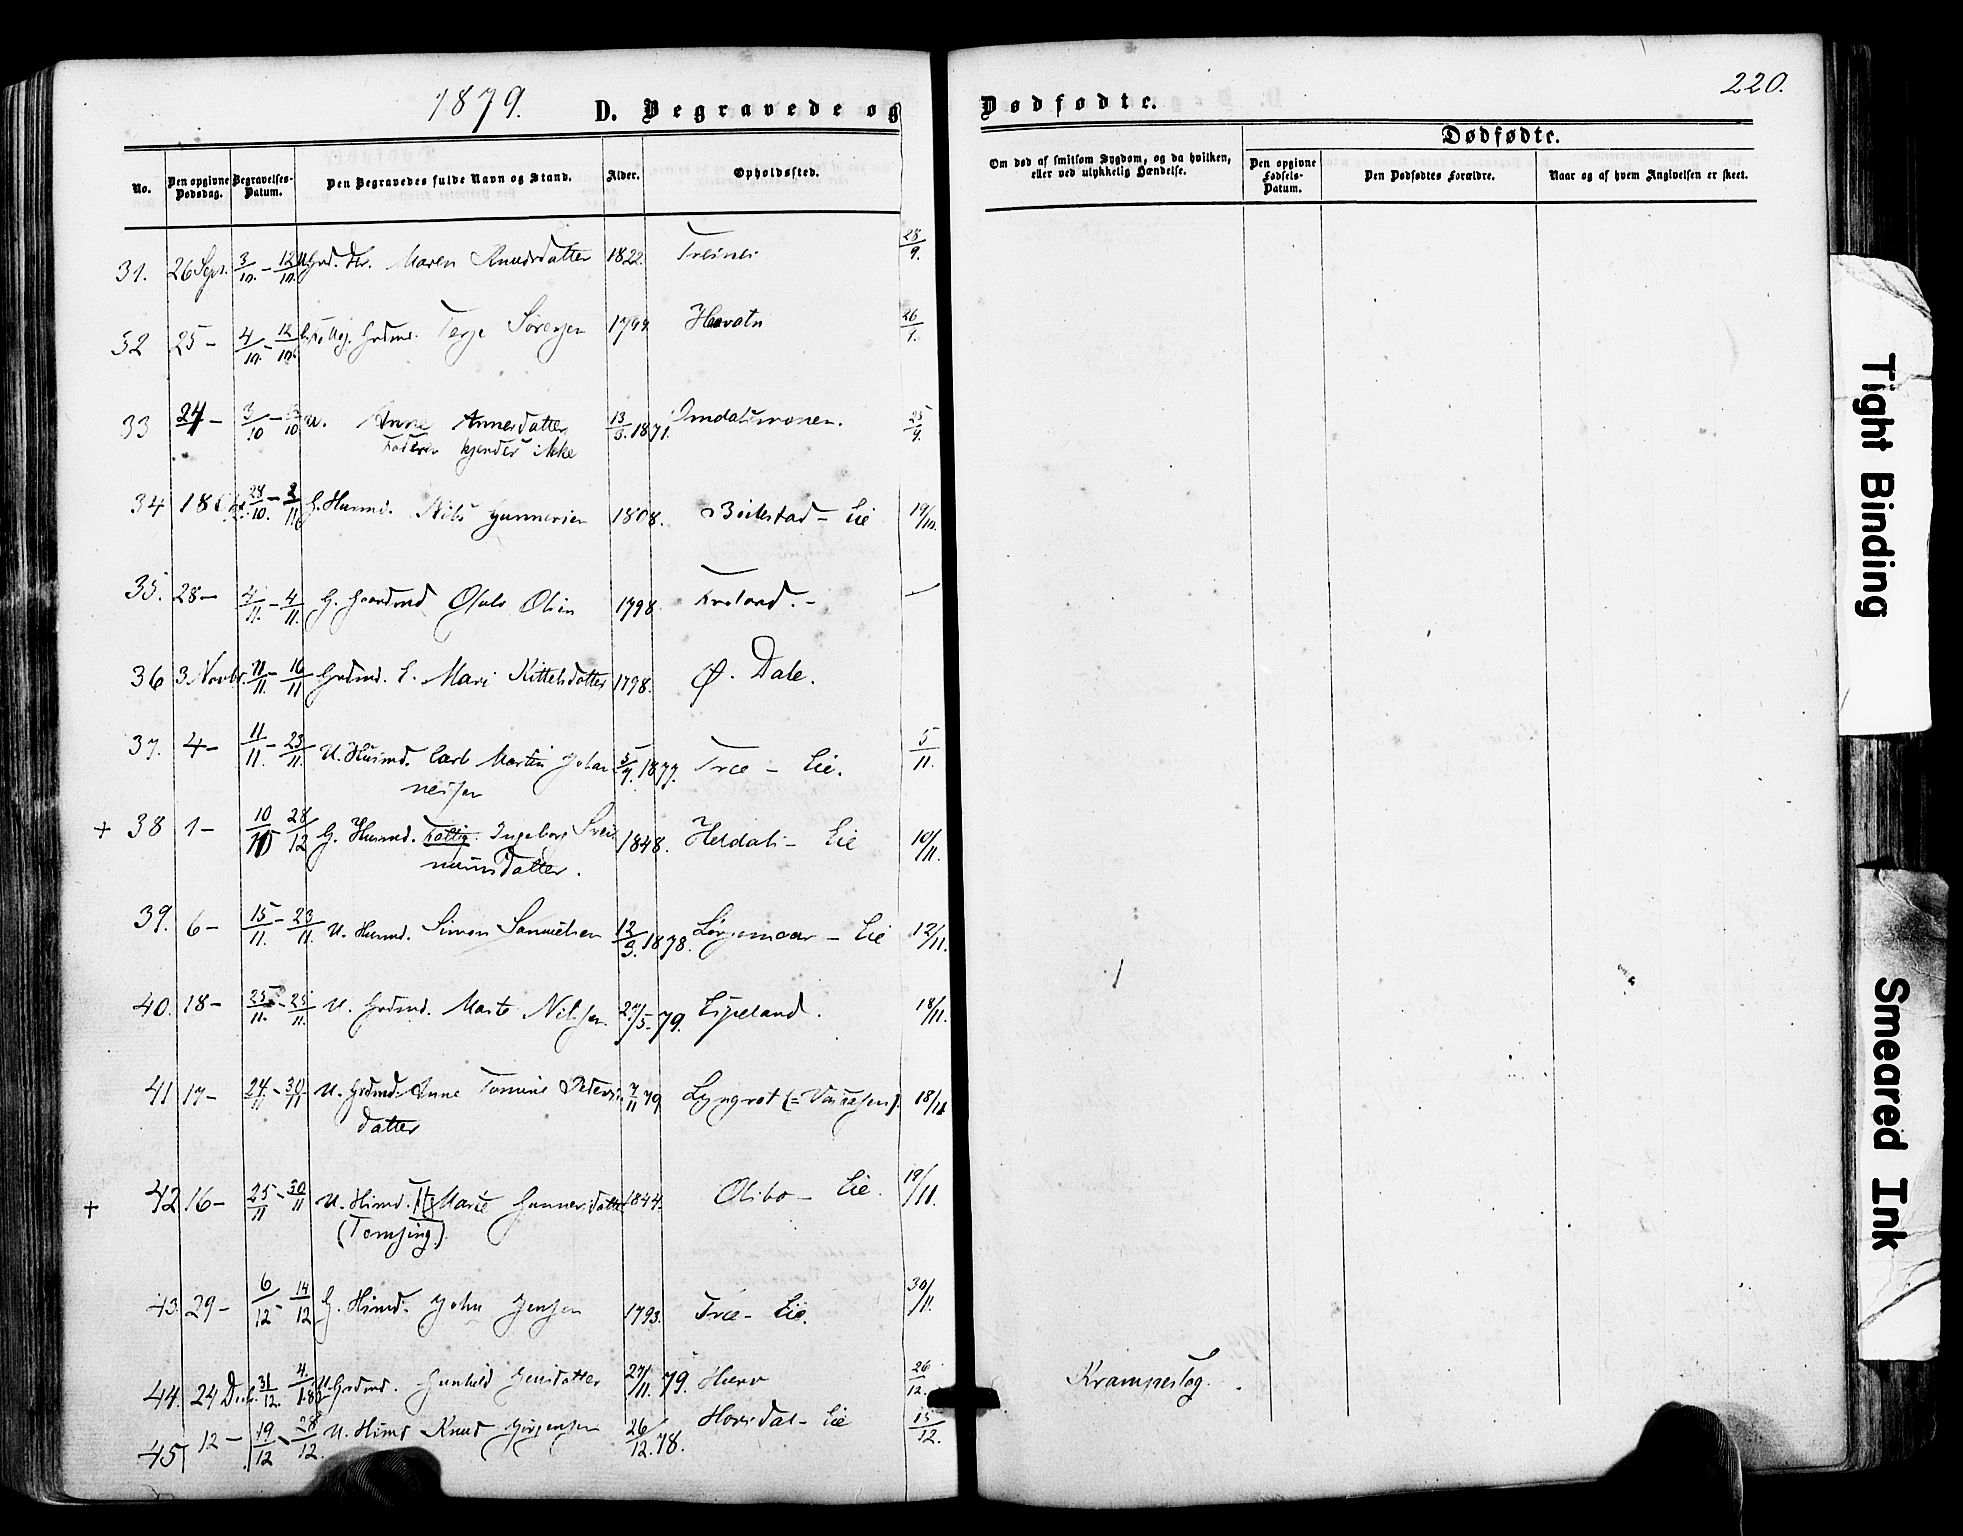 1879.
D. Begravede og
Dødfødte.
220.
No.
Den opgivne Dødsdag.
Begravelses-Datum.
Den Begravedes fulde Navn og Stand.
Alder.
Opholdssted.
Om død af smitsom Sygdom, og da hvilken, eller ved ulykkelig Hændelse.
Dødfødte.
Den opgivne Fødsels-Datum.
Den Dødfødtes Forældre.
Naar og af hvem Angivelsen er skeet.
31. 26 Sept. 3/10 - 12/10 Maren Knudsdatter 1822. 28/9.
32 25 - 4/10 - 12/10 Grdmd. Terje Sørensen Hovatn 26/9.
33 24 - 3/10 - U. Anne Annesdatter 13/3.1871. 25/9.
Faderen kjendes ikke
34 18 28/10. - 2/11 G. Husmd. Nils Gunnersen 1808. Birkestad - Eie 19/10.
35. 28 - 4/11. - 4/11. G. Gaardmd Olsen 1798.
36 3 Novbr. 11/11. - 16/11 Grdmd. E. Mari Kittelsdatter 1798. Ø. Dale.
37. 4 - 11/11. - 23/11. U. Husmd. Carl Martin Johan 5/9.1877. Træ - Eie. 5/11.
nessen
+ 38 1 - 10/11 28/12 G. Husmd. Fattig. Ingeborg Svei 1848. Heldals - Eie 10/11.
nunsdatter.
39. 6 - 15/11. - 23/11. U. Husmd. Simon Samuelsen 12/9.1878. - Eie 12/11.
40. 18 - 25/11. - 25/11. U. Grdmd. Nilsen 27/5.79. Lipeland. 18/11.
41 17 - 24/11 - 30/11 U. Grdmd. Anne Tomine Peders 7/11 79 Lyngrot 18/11
datter
+ 42 16 - 25/11 - 30/11 U. Hmd. Marie Gunnersdatter 1844. Olibo - Eie. 19/11.
43. 29 - 6/12 - 14/12 G. Hmd. John Jensen 1793. Træ - Eie. 30/11.
44. 24 Decb. 31/12. 4/1.80 U. Grdmd. Gunhild Jensdatter 27/11. 79. 26/12. Krampeslag.
45 12 - 19/12 - 28/12. U. Hmd Knud Jørgensen 26/12.78. Hovsdal - Eie 15/12.
Tight Binding
Smeared Ink